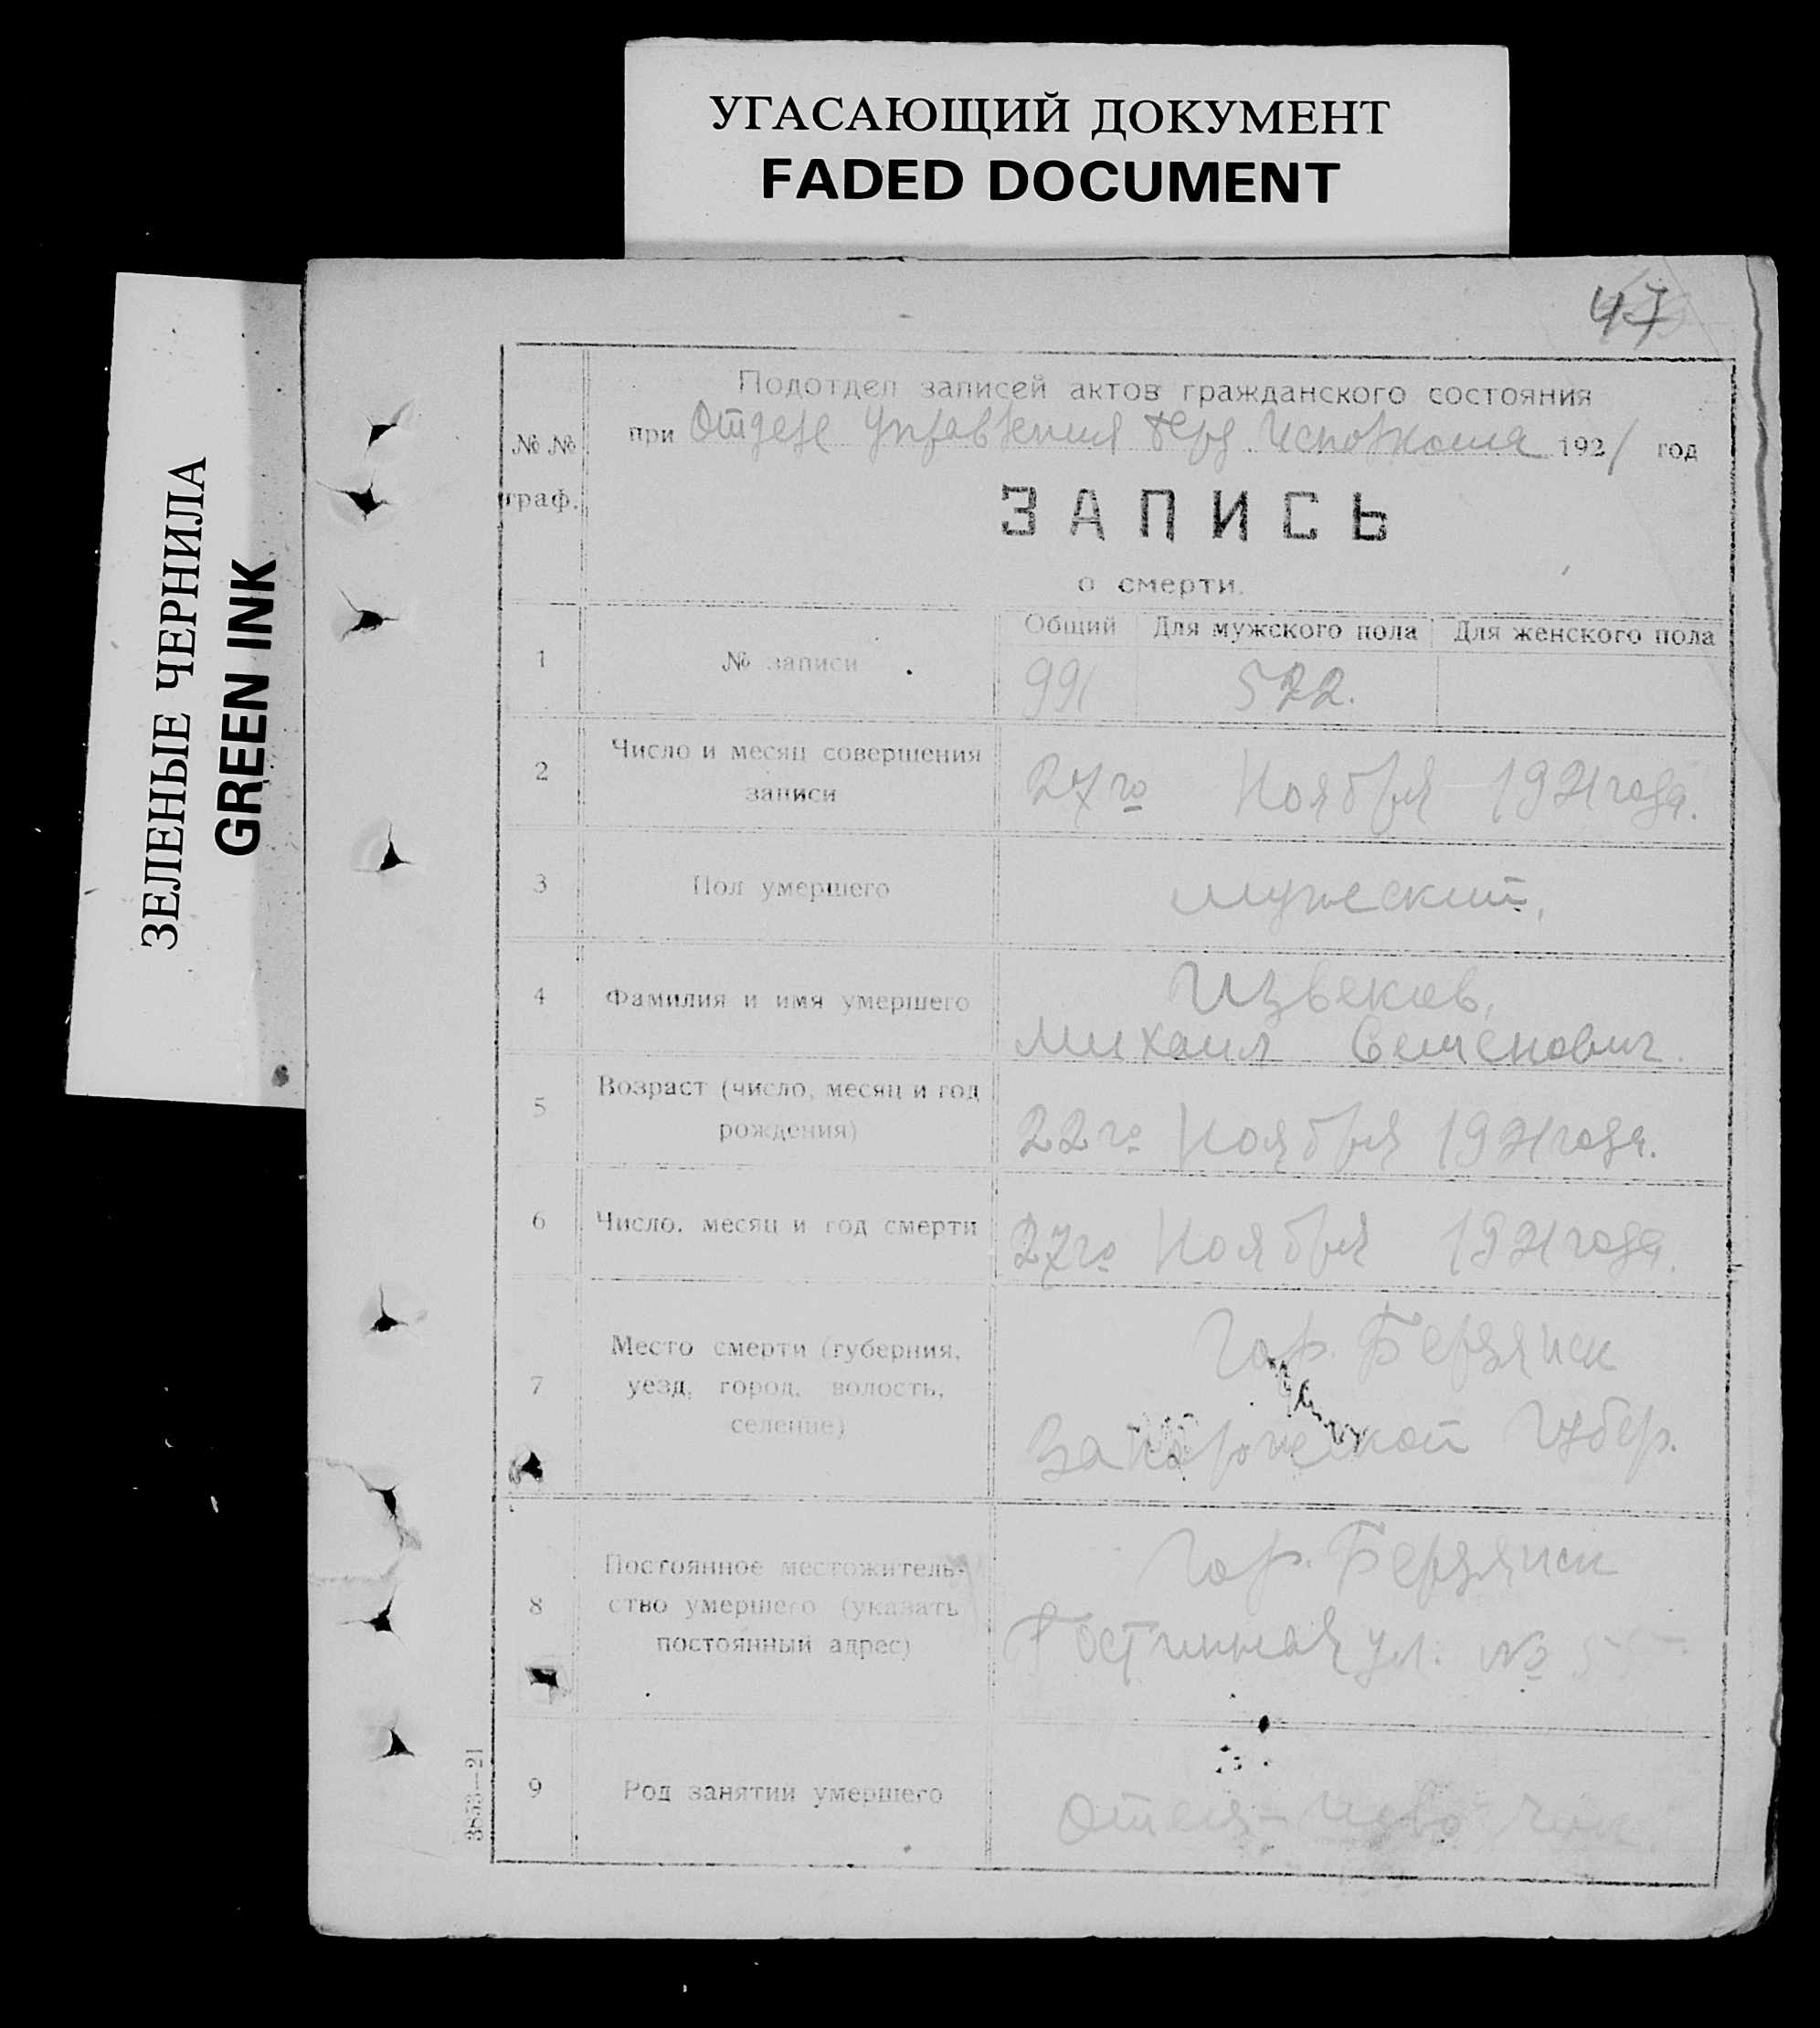 УГАСАЮЩИЙ ДОКУМЕНТ
FADED DOCUMENT
ЗЕЛЕНЫЕ ЧЕРНИЛА
GREEN INK
47
Подотдел записей актов гражданского состояния
№ № при Отделе Управления Берд Исполкома 1921 год
граф.
ЗАПИСЬ
о смерти.
Общий Для мужского пола Для женского пола
1 № записи 991 522.
2 Число и месяц совершения записи 27го Ноября 1921 года.
3 Пол умершего мужеский,
4 Фамилия и имя умершего Извеков,
Михаил Семенович.
5 Возраст (число, месяц и год
рождения) 22го Ноября 1921 года.
6 Число, месяц и год смерти 27го Ноября 1921 года.
7 Место смерти (губерния,
уезд, город, волость,
селение)
Гор. Бердянск
Запорожской Губер.
8 Постоянное местожитель-
ство умершего (указать
постоянный адрес)
Гор. Бердянск
Гостинная ул. №
9 Род занятий умершего
3853—21